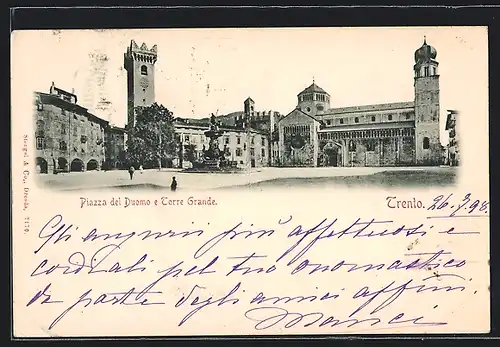 Piazza del Duomo e Torre Grande.
Trento. 26.7.98.
Stengel & Co., Dresda. 7170
Gli auguri più affettuosi e
cordiali pel tuo onomastico
da parte degli amici affini.